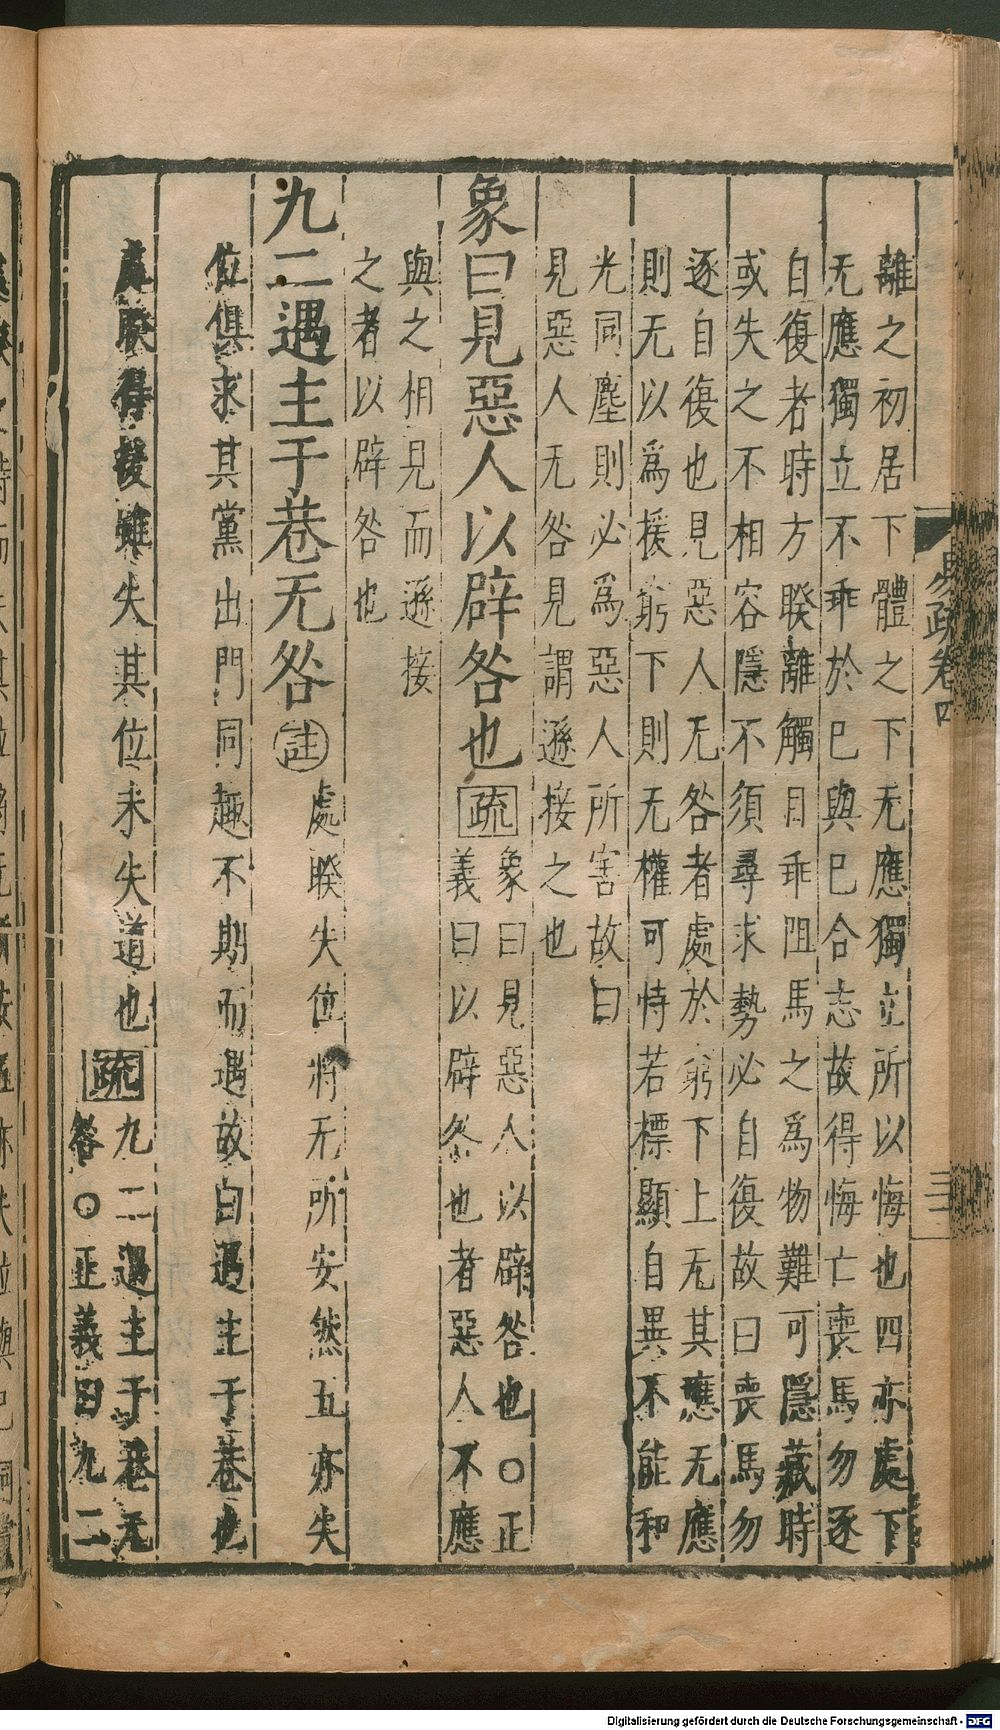 易疏卷四
離之初居下體之下无應獨立所以悔也四亦處下
无應獨立不乖於已與已合志故得悔亡喪馬勿逐
自復者時方睽離觸目乖阻馬之爲物難可隱藏時
或失之不相容隱不須尋求勢必自復故曰喪馬勿
逐自復也見惡人无咎者處於窮下上无其應无應
則无以爲援窮下則无權可恃若標顯自異不能和
光同塵則必爲惡人所害故曰
見惡人无咎見謂遜接之也
象曰見惡人以辟咎也疏象曰見惡人以辟咎也○正
義曰以辟咎也者惡人不應
與之相見而遜接
之者以辟咎也
九二遇主于巷无咎註處睽失位將无所安然五亦失
位俱求其黨出門同趣不期而遇故曰遇主于巷也
處睽得援雖失其位未失道也疏九二遇主于巷无
咎○正義曰九二
Digitalisierung gefördert durch die Deutsche Forschungsgemeinschaft - DFG